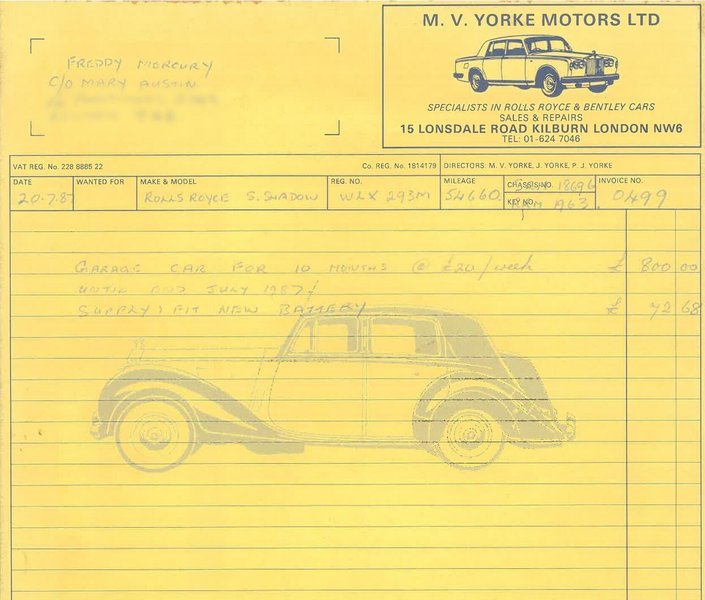 M. V. YORKE MOTORS LTD
SPECIALISTS IN ROLLS ROYCE & BENTLEY CARS
SALES & REPAIRS
15 LONSDALE ROAD KILBURN LONDON NW6
TEL: 01-624 7046
FREDDY MERCURY
C/O MARY AUSTIN
VAT REG. No. 228 8885 22
Co. REG. No. 1814179
DIRECTORS: M. V. YORKE, J. YORKE, P. J. YORKE
DATE
20.7.87
WANTED FOR
MAKE & MODEL
ROLLS ROYCE S. SHADOW
REG. NO.
WLX 293M
MILEAGE
54660
CHASSIS NO.
18696
KEY NO.
1963
INVOICE NO.
0499
GARAGE CAR FOR 10 MONTHS @ £20/week £ 800 00
UNTIL END JULY 1987
SUPPLY & FIT NEW BATTERY £ 72 68